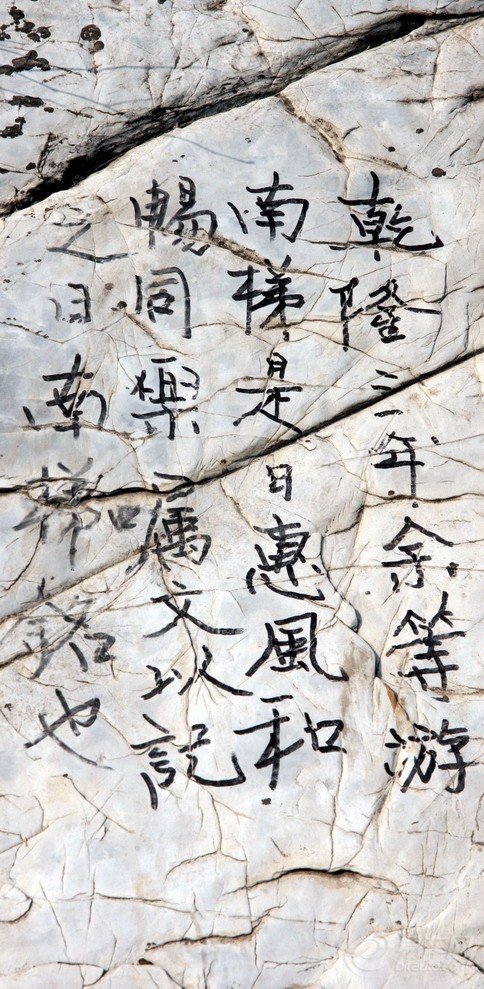 乾隆三年余等游
南梯是日惠风和
畅同樂属文以記
之日南梯銘也